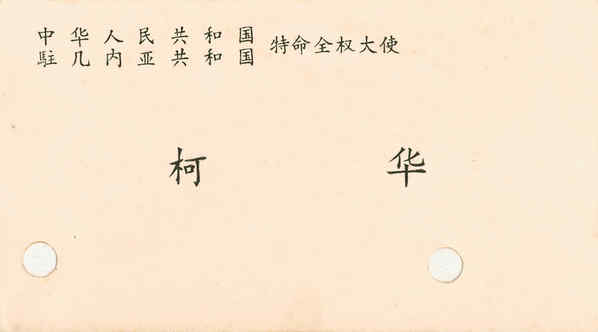 中华人民共和国
駐几内亚共和国 特命全权大使
柯 华